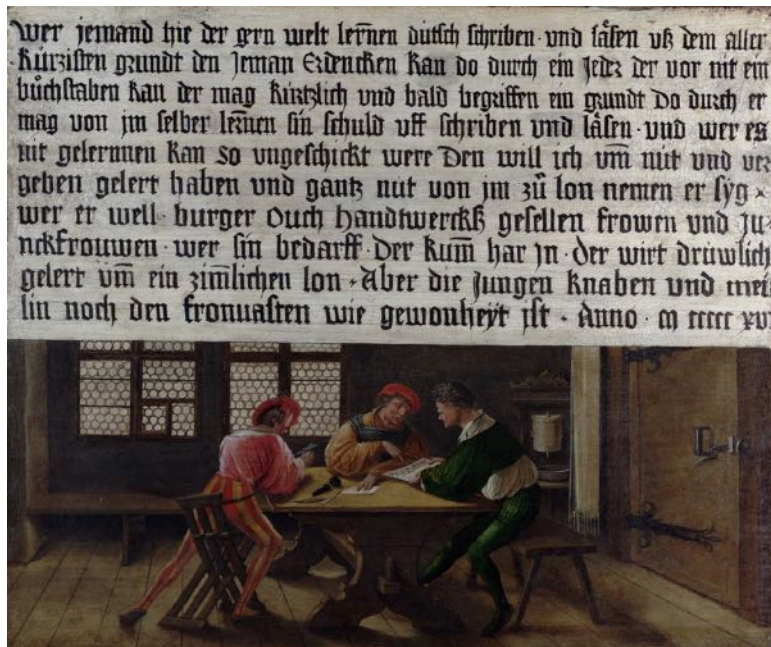 wer jemand hie der gern welt lern̄en dütsch schriben und låsen vß dem aller
kürzisten grundt den jeman Erdencken kan do durch ein jeder der vor nit ein
bůchstaben kan der mag kürtzlich und bald begriffen ein grundt do durch er
mag von jm selber lern̄en sin schuld vff schriben vnd låsen und wer es
nit gelernnen kan so vngeschickt were Den will ich vm̄ nüt und ver
geben gelert haben vnd gantz nüt von jm zů lon nemen er syg
wer er well burger ouch handtwerckß gesellen frowen und ju
nckfrouwen wer sin bedarff Der kum̄ har jn der wirt drüwlich
gelert vm̄ ein zimlichen lon Aber die jungen knaben und mei
lin noch den fronuasten wie gewonheyt ist Anno m ccccc xvi